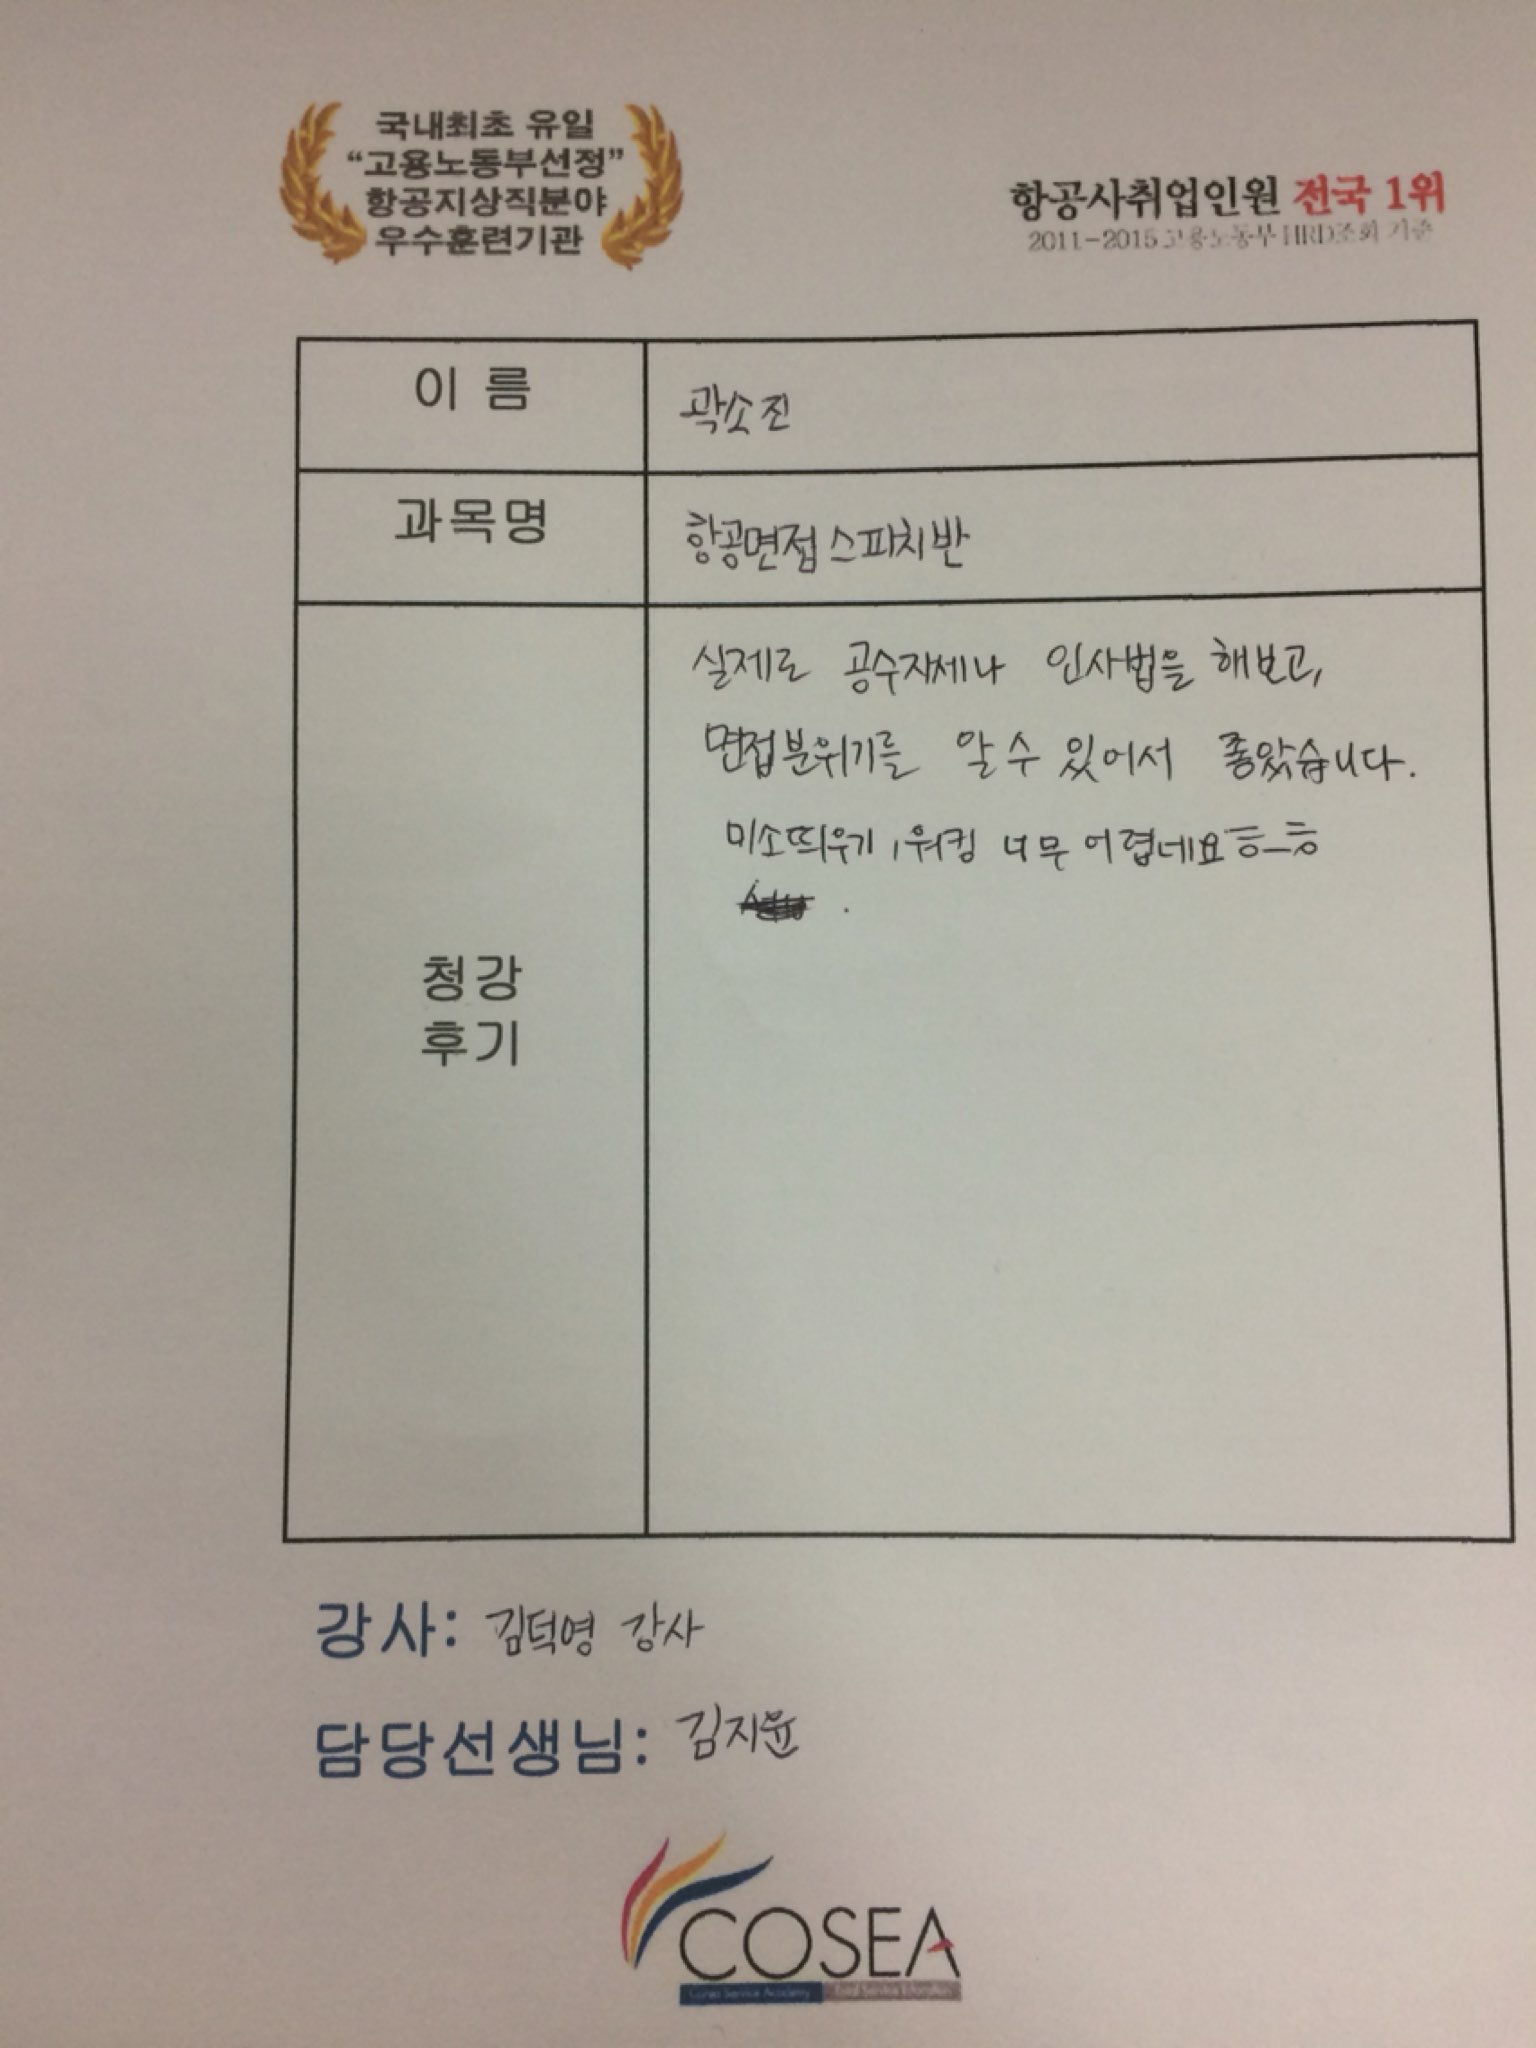 국내최초 유일
“고용노동부선정”
항공지상직분야
우수훈련기관
항공사취업인원 전국 1위
2011-2015 고용노동부 HRD조회 기준
이 름
곽소진
과목명
항공면접스피치반
청강
후기
실제로 공수자세나 인사법을 해보고,
면접분위기를 알 수 있어서 좋았습니다.
미소띄우기, 워킹 너무 어렵네요ㅠ_ㅠ
강사: 김덕영 강사
담당선생님: 김지윤
COSEA
Korea Service Academy Total Service Education